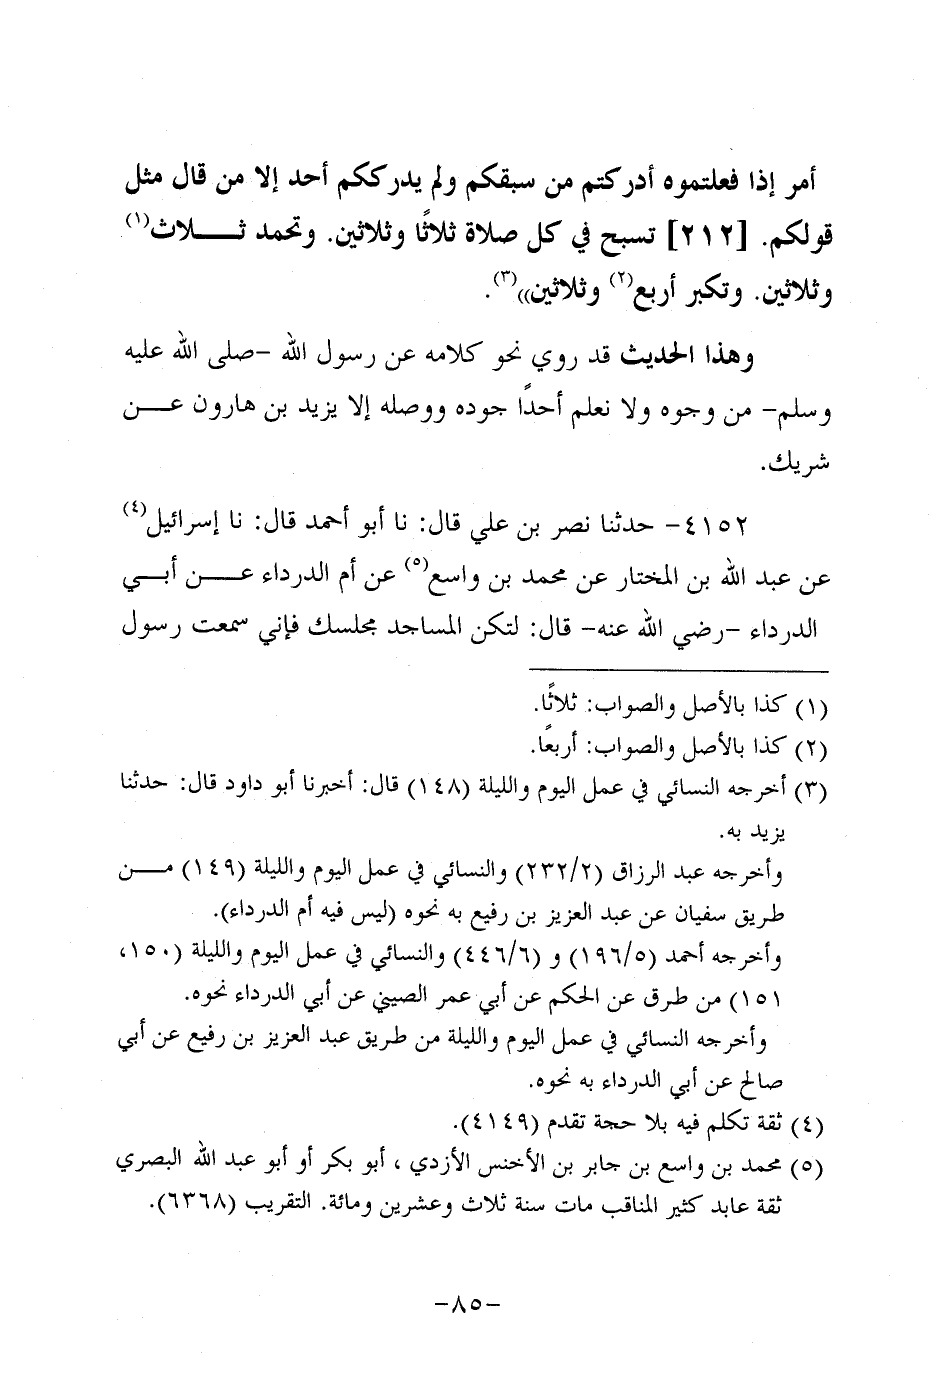 أمر إذا فعلتموه أدركتم من سبقكم ولم يدرككم أحد إلا من قال مثل
قولكم. [٢١٢] تسبح في كل صلاة ثلاثًا وثلاثين. وتحمد ثـــلاث(١)
وثلاثين. وتكبر أربع(٢) وثلاثين))(٣).
وهذا الحديث قد روي نحو كلامه عن رسول الله -صلى الله عليه
وسلم- من وجوه ولا نعلم أحدًا جوده ووصله إلا يزيد بن هارون عـــن
شريك.
٤١٥٢- حدثنا نصر بن علي قال: نا أبو أحمد قال: نا إسرائيل(٤)
عن عبد الله بن المختار عن محمد بن واسع(٥) عن أم الدرداء عـــن أبـــي
الدرداء -رضي الله عنه- قال: لتكن المساجد مجلسك فإني سمعت رسول
(١) كذا بالأصل والصواب: ثلاثًا.
(٢) كذا بالأصل والصواب: أربعًا.
(٣) أخرجه النسائي في عمل اليوم والليلة (١٤٨) قال: أخبرنا أبو داود قال: حدثنا
يزيد به.
وأخرجه عبد الرزاق (٢٣٢/٢) والنسائي في عمل اليوم والليلة (١٤٩) مـــن
طريق سفيان عن عبد العزيز بن رفيع به نحوه (ليس فيه أم الدرداء).
وأخرجه أحمد (١٩٦/٥) و (٤٤٦/٦) والنسائي في عمل اليوم والليلة (١٥٠،
١٥١) من طرق عن الحكم عن أبي عمر الصيني عن أبي الدرداء نحوه.
وأخرجه النسائي في عمل اليوم والليلة من طريق عبد العزيز بن رفيع عن أبي
صالح عن أبي الدرداء به نحوه.
(٤) ثقة تكلم فيه بلا حجة تقدم (٤١٤٩).
(٥) محمد بن واسع بن جابر بن الأخنس الأزدي ، أبو بكر أو أبو عبد الله البصري
ثقة عابد كثير المناقب مات سنة ثلاث وعشرين ومائة. التقريب (٦٣٦٨).
-٨٥-